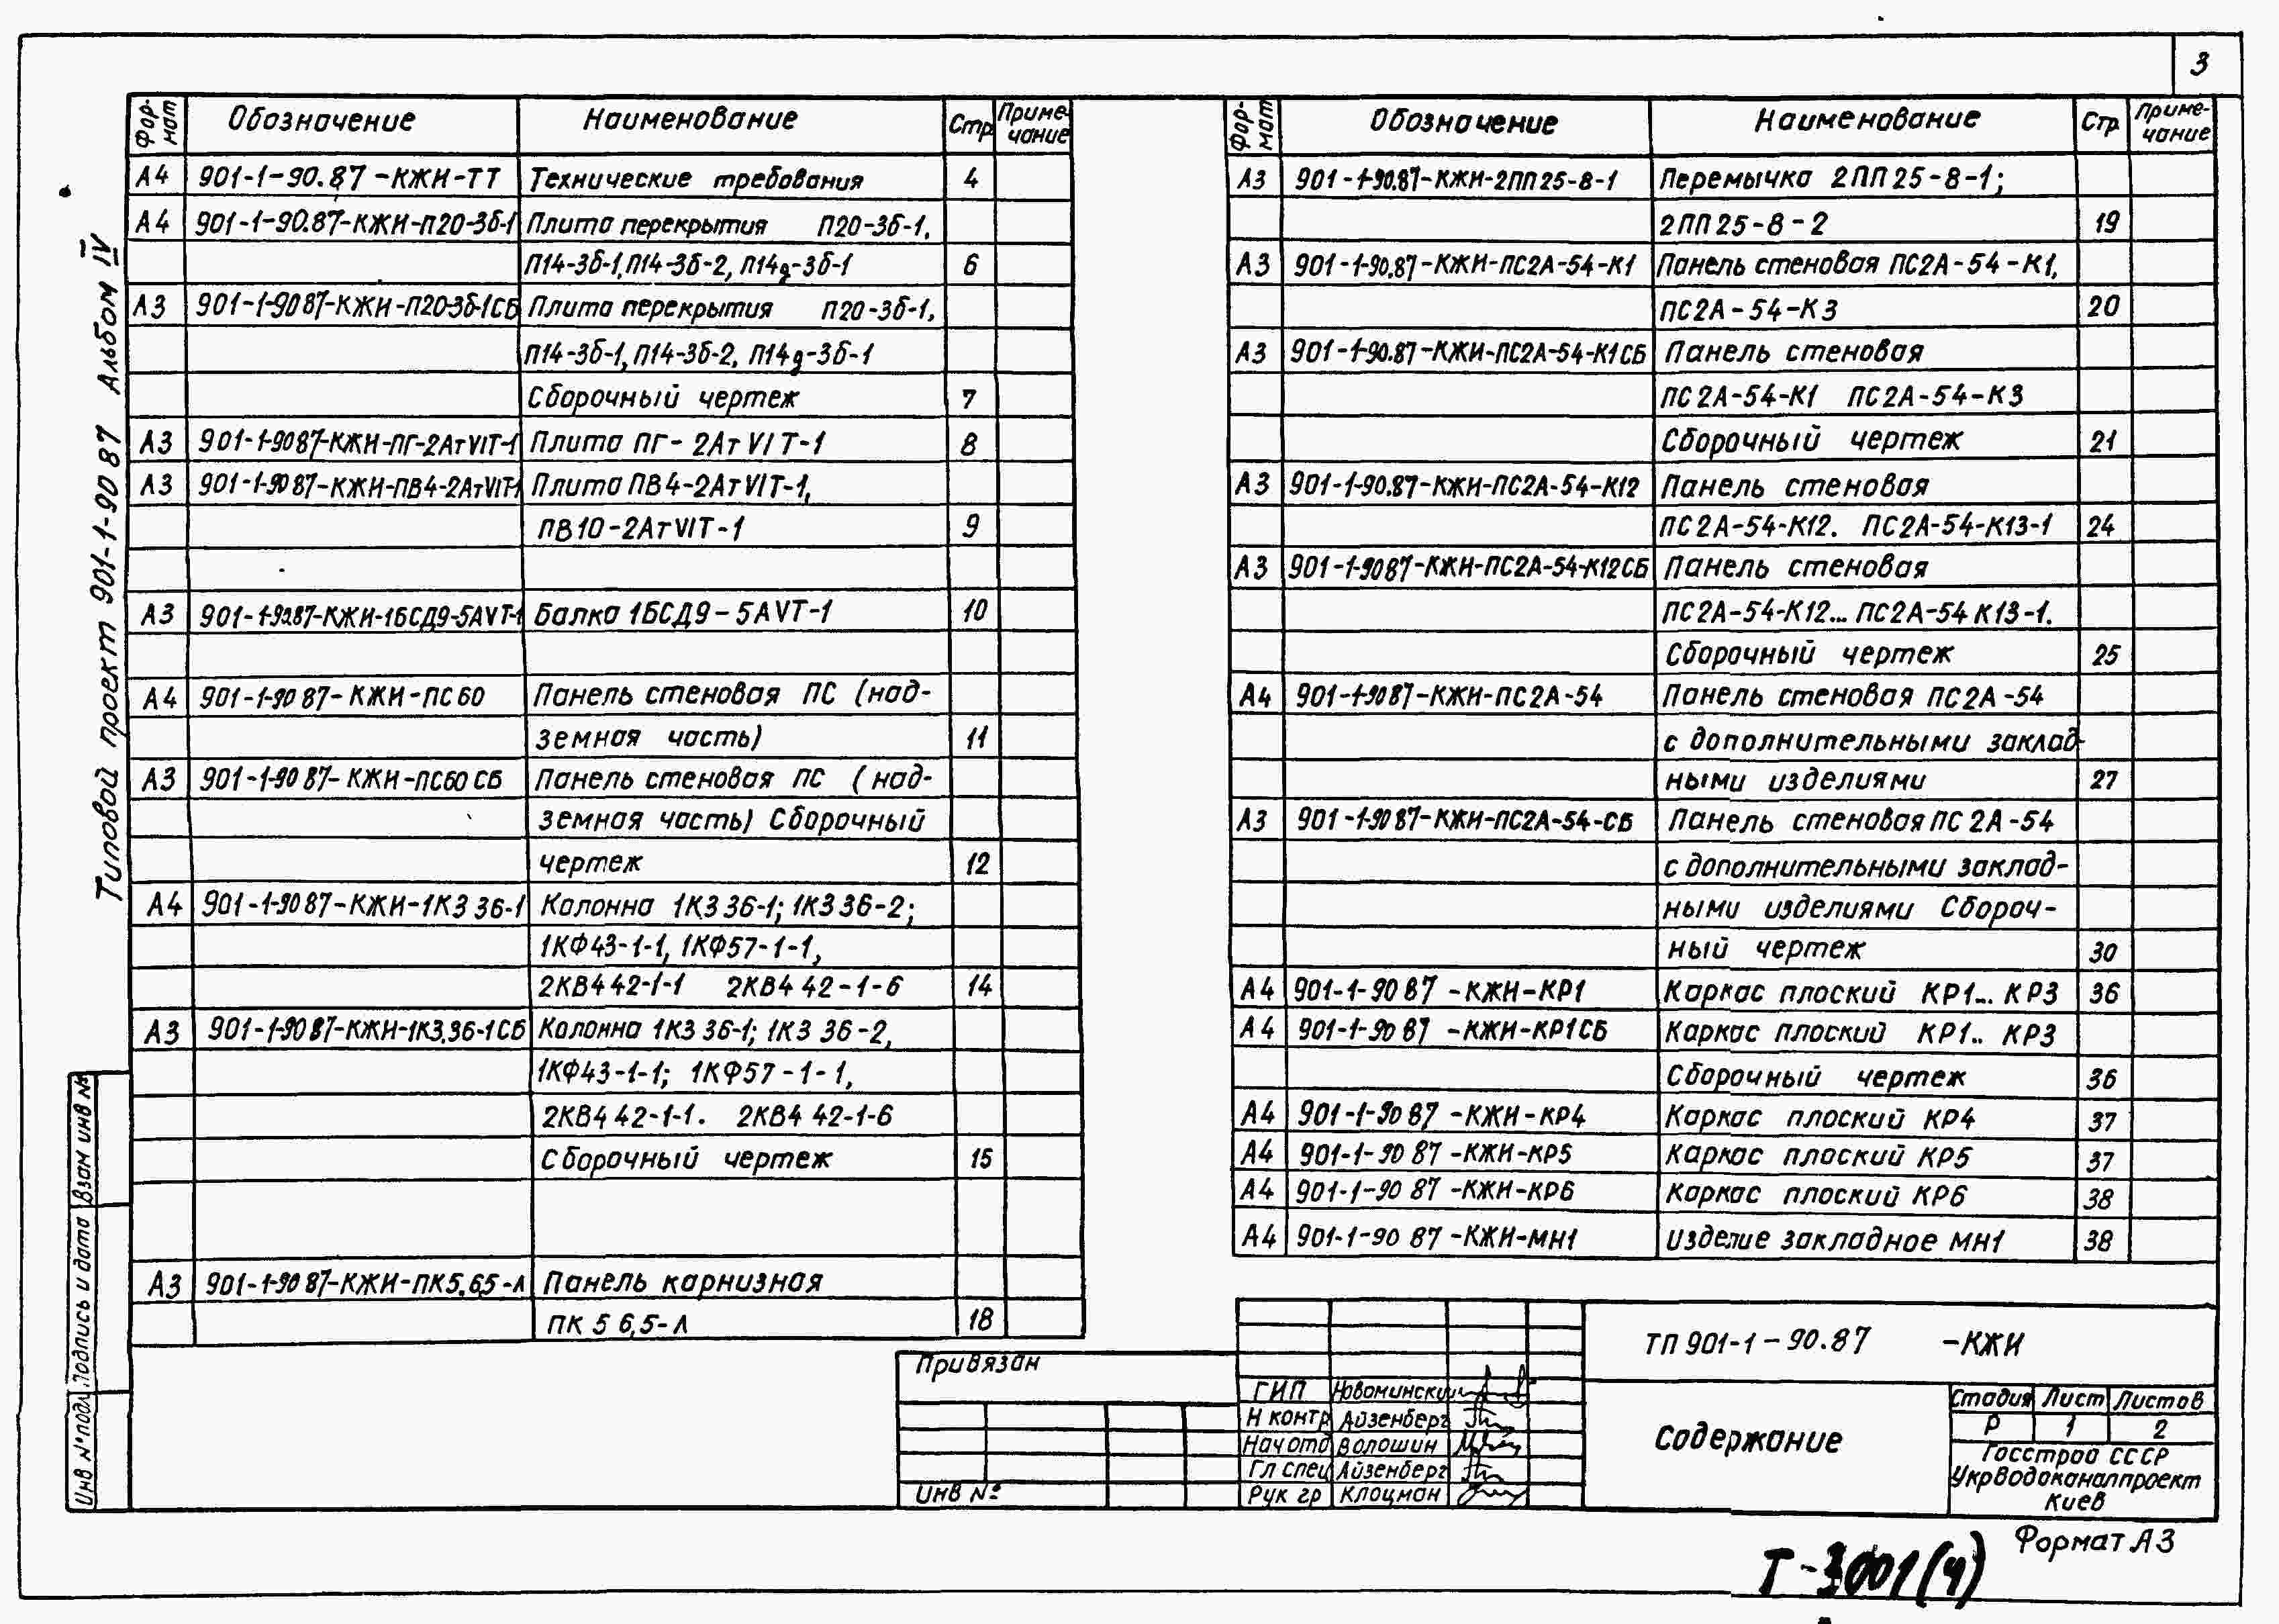 3
Типовой проект 901-1-90 87 Альбом IV
Фор-мат Обозначение Наименование Стр Приме-чание
А4 901-1-90.87-КЖИ-ТТ Технические требования 4
А4 901-1-90.87-КЖИ-П20-3б-1 Плита перекрытия П20-3б-1,
П14-3б-1, П14-3б-2, П14д-3б-1 6
А3 901-1-90 87-КЖИ-П20-3б-1СБ Плита перекрытия П20-3б-1,
П14-3б-1, П14-3б-2, П14д-3б-1
Сборочный чертеж 7
А3 901-1-90 87-КЖИ-ПГ-2АтVIТ-1 Плита ПГ-2АтVIТ-1 8
А3 901-1-90 87-КЖИ-ПВ4-2АтVIТ-1 Плита ПВ4-2АтVIТ-1,
ПВ10-2АтVIТ-1 9
А3 901-1-90.87-КЖИ-1БСД9-5АVТ-1 Балка 1БСД9-5АVТ-1 10
А4 901-1-90 87-КЖИ-ПС60 Панель стеновая ПС (над-
земная часть) 11
А3 901-1-90 87-КЖИ-ПС60 СБ Панель стеновая ПС (над-
земная часть) Сборочный
чертеж 12
А4 901-1-90 87-КЖИ-1К3 36-1 Колонна 1К3 36-1; 1К3 36-2;
1КФ43-1-1, 1КФ57-1-1,
2КВ4 42-1-1 2КВ4 42-1-6 14
А3 901-1-90 87-КЖИ-1К3.36-1СБ Колонна 1К3 36-1; 1К3 36-2,
1КФ43-1-1; 1КФ57-1-1,
2КВ4 42-1-1. 2КВ4 42-1-6
Сборочный чертеж 15
А3 901-1-90 87-КЖИ-ПК5.6,5-Л Панель карнизная
ПК 5 6,5-Л 18
Фор-мат Обозначение Наименование Стр Приме-чание
А3 901-1-90.87-КЖИ-2ПП25-8-1 Перемычка 2ПП25-8-1;
2ПП25-8-2 19
А3 901-1-90.87-КЖИ-ПС2А-54-К1 Панель стеновая ПС2А-54-К1,
ПС2А-54-К3 20
А3 901-1-90.87-КЖИ-ПС2А-54-К1СБ Панель стеновая
ПС2А-54-К1 ПС2А-54-К3
Сборочный чертеж 21
А3 901-1-90.87-КЖИ-ПС2А-54-К12 Панель стеновая
ПС2А-54-К12. ПС2А-54-К13-1 24
А3 901-1-90 87-КЖИ-ПС2А-54-К12СБ Панель стеновая
ПС2А-54-К12... ПС2А-54 К13-1.
Сборочный чертеж 25
А4 901-1-90 87-КЖИ-ПС2А-54 Панель стеновая ПС2А-54
с дополнительными заклад-
ными изделиями 27
А3 901-1-90 87-КЖИ-ПС2А-54-СБ Панель стеновая ПС2А-54
с дополнительными заклад-
ными изделиями Сбороч-
ный чертеж 30
А4 901-1-90 87 -КЖИ-КР1 Каркас плоский КР1... КР3 36
А4 901-1-90 87 -КЖИ-КР1СБ Каркас плоский КР1.. КР3
Сборочный чертеж 36
А4 901-1-90 87 -КЖИ-КР4 Каркас плоский КР4 37
А4 901-1-90 87 -КЖИ-КР5 Каркас плоский КР5 37
А4 901-1-90 87 -КЖИ-КР6 Каркас плоский КР6 38
А4 901-1-90 87 -КЖИ-МН1 Изделие закладное МН1 38
Взам инв №
Подпись и дата
Инв № подл
Привязан
Инв №
ГИП Новоминский
Н контр Айзенберг
Нач отд Волошин
Гл спец Айзенберг
Рук гр Клоцман
ТП 901-1-90.87 -КЖИ
Содержание
Стадия Лист Листов
Р 1 2
Госстрой СССР
Укрводоканалпроект
Киев
Формат А3
Т-3001(4)